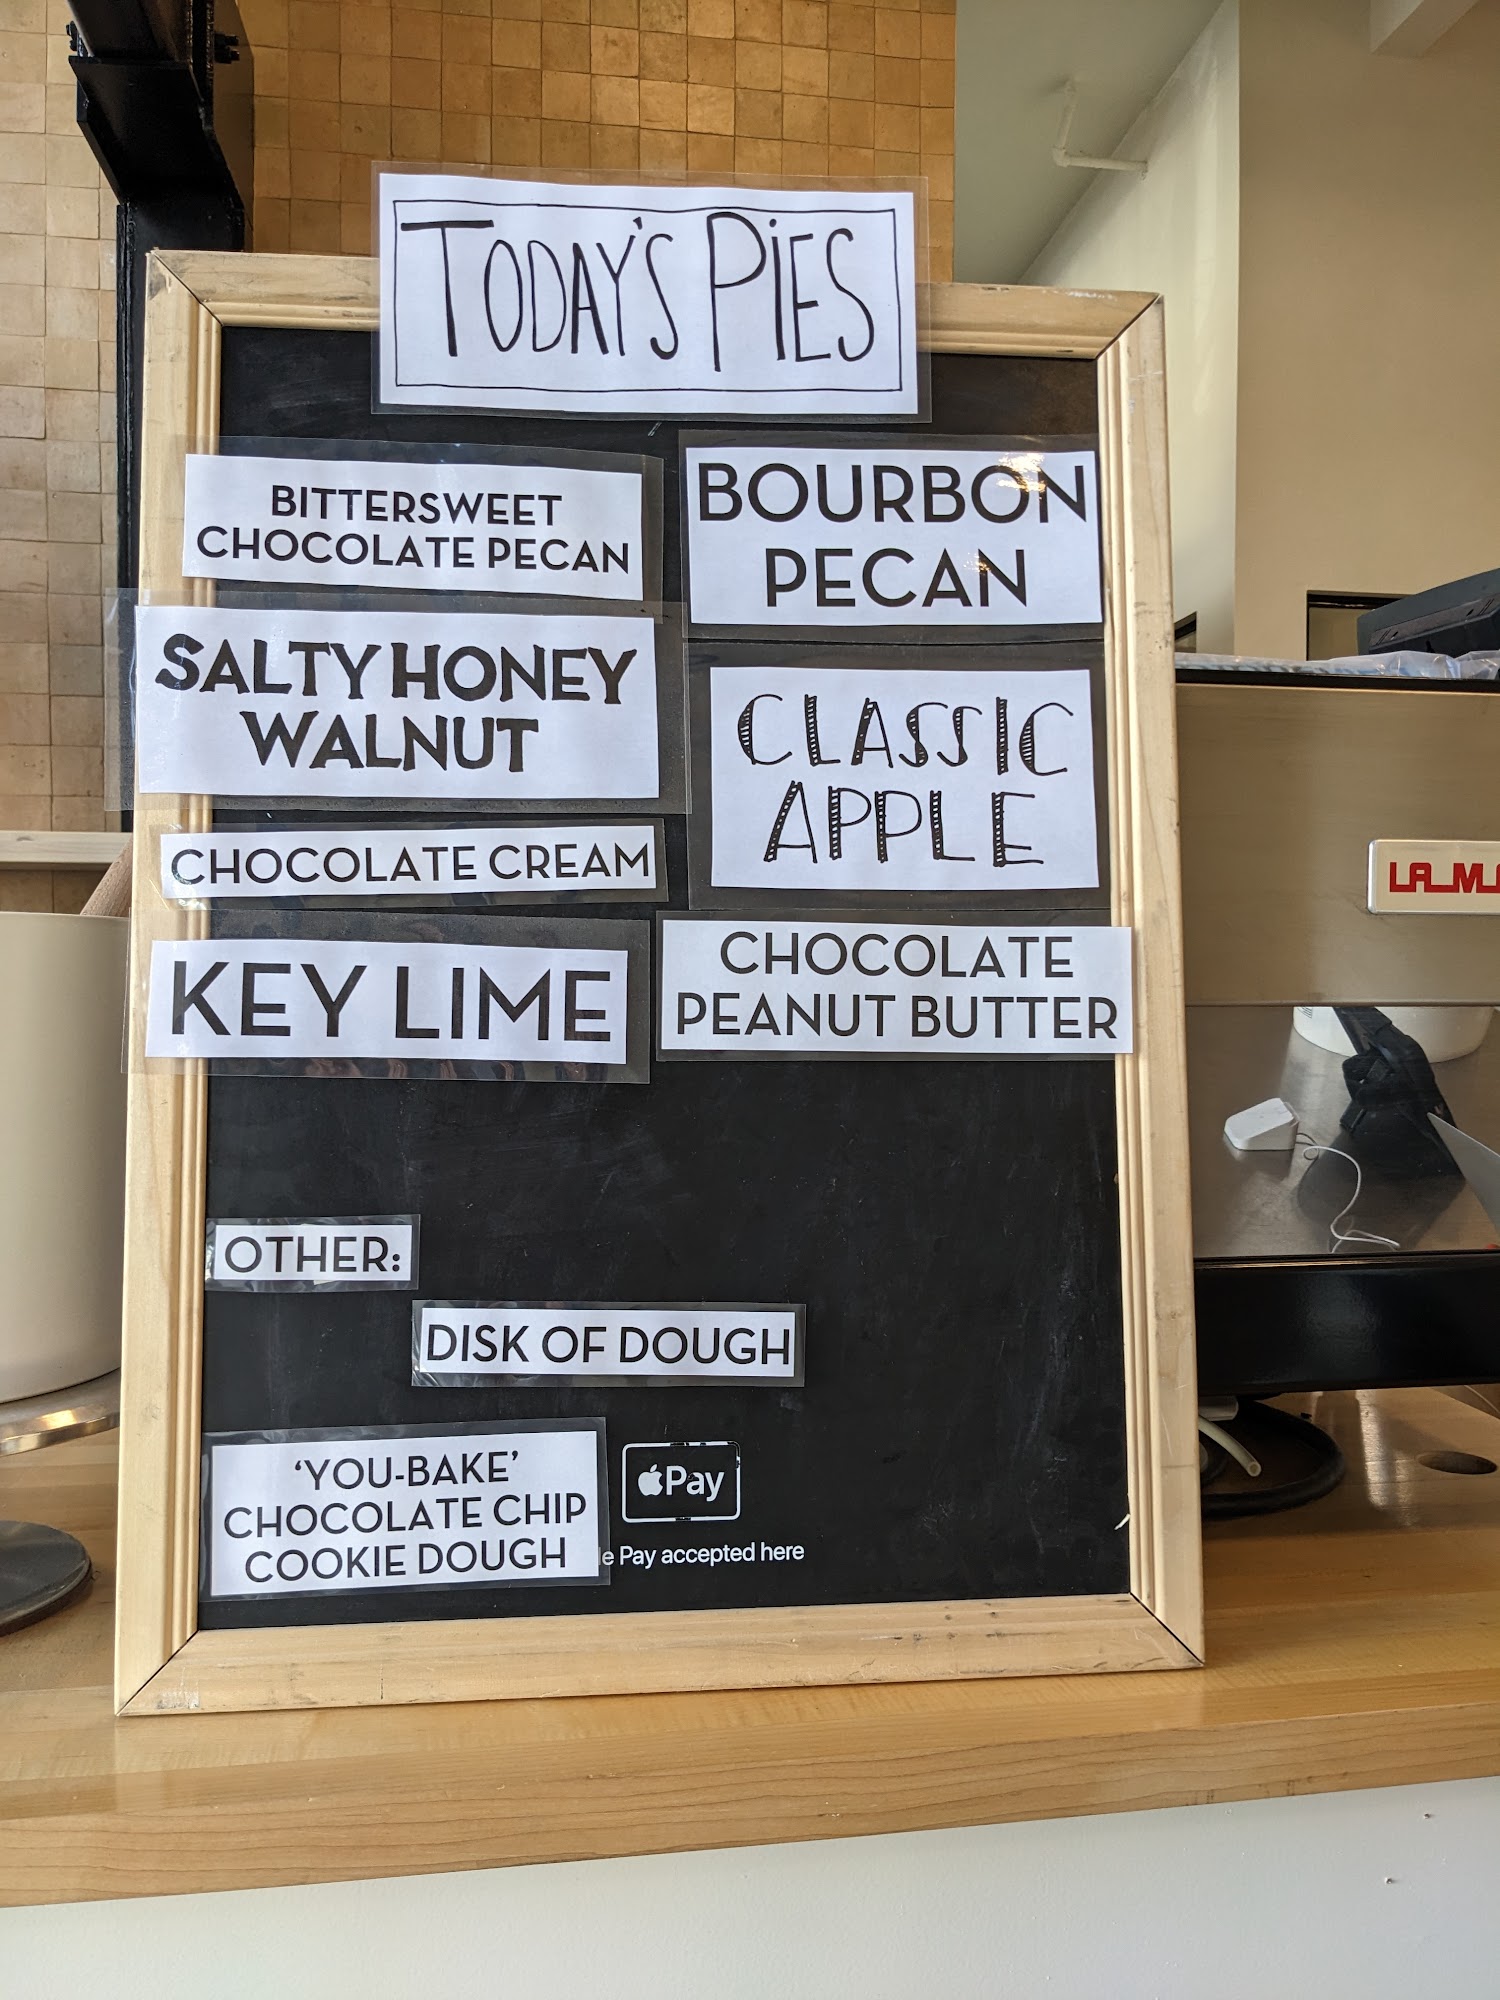 TODAY'S PIES
BITTERSWEET
CHOCOLATE PECAN
BOURBON
PECAN
SALTY HONEY
WALNUT
CLASSIC
APPLE
CHOCOLATE CREAM
KEY LIME
CHOCOLATE
PEANUT BUTTER
OTHER:
DISK OF DOUGH
'YOU-BAKE'
CHOCOLATE CHIP
COOKIE DOUGH
Pay
le Pay accepted here
LA M